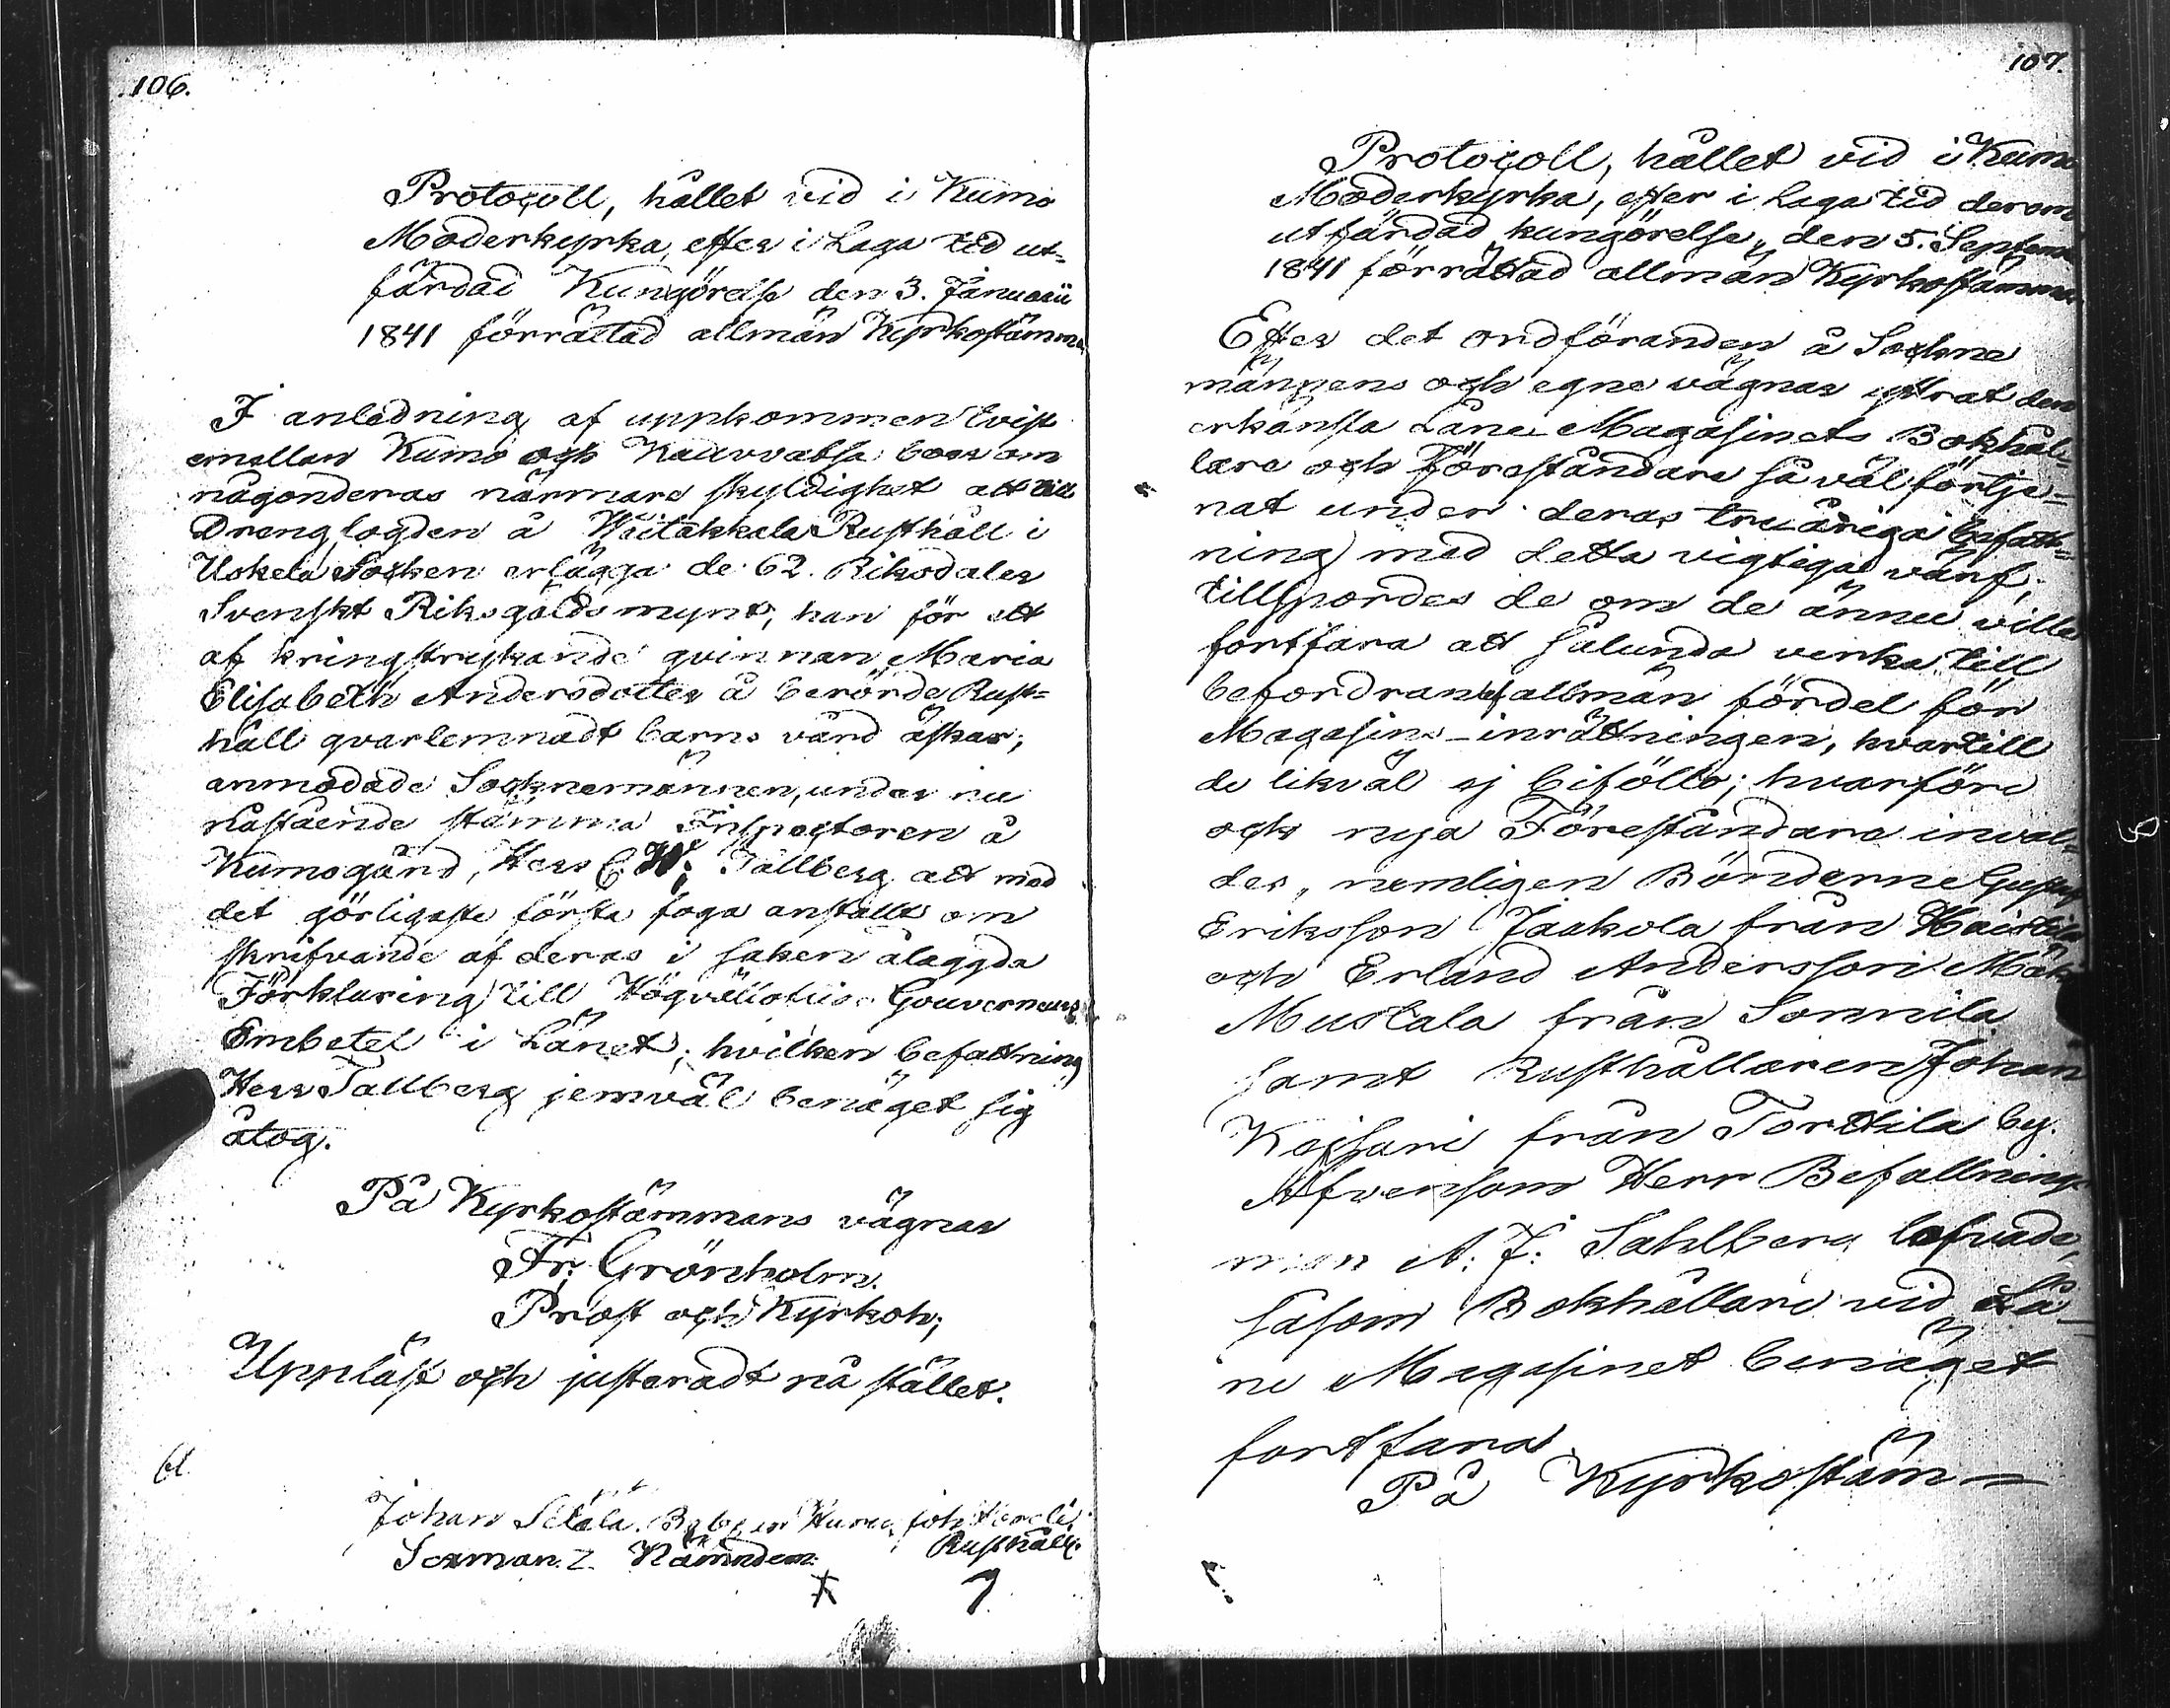 106.
Protocoll, hållet vid i Kumo
Moderkyrka, efter i Laga tid ut=
färdad Kungörelse den 3. Januarii
1841 förrättad allmän Kyrkostämma
I anledning af uppkommen tvist
emellan Kumo och Kauvvatsa boer om
någonderas närmare skyldighet att till
Drenglogden å Waitakkala Rusthåll i
Uskela Socken erlägga de 62. Riksdaler
Svenskt Riksgälds mynt, han för ett
af kringstrykande qvinnan Maria
Elisabeth Andersdotter å berörde Rust=
håll qvarlemnadt barns vård äskar;
anmodade Socknemännen, under nu
påstående stämma Inspectoren å
Kumogård, Herr C. W. Tallberg att med
det görligaste första foga anstallt om
skrifvande af deras i saken ålaggda
Förklaring till Högvällofliga Gouverneurs
Embetet i Länet; hvilken befattning
Herr Tallberg jemväl benäget sig
åtog.
På Kyrkostämmans vägnar
Fr: Grönholm.
Prost och Kyrkoh;
Uppläst och justeradt på stället.
Johan
Sexman. Nämndem: Rusthåll:
107.
Protocoll, hållet vid i Kumo
Moderkyrka, efter i Laga tid derom
utfärdad kungörelse, den 5. Septem
1841 förrättad allmän Kyrkostämma
Efter det ordföranden å Sockne
männens och egne vägnar yttrat den
erkänsla Låne Magasinets Bokhål=
lare och Föreståndare så väl förtje=
nat under deras treåriga befatt=
ning med detta vigtiga värf,
tillspordes de om de ännu ville
fortfara att sålunda verka till
befordran af allmän fördel för
Magasins-inrättningen, hvartill
de likväl ej biföllo; hvarföre
och nya Föreståndare inval=
des, nemligen Bönderne Gustaf
Eriksson Jaakola från Haistila
och Erland Andersson
Mustala från Sonnila
samt Rusthållaren Johan
Kojsari från Torttila by.
Äfvensom Herr Befallnings
man A. J. Sahlberg lofvade,
såsom Bokhållare vid Lå-
ne Magasinet benäget
fortfara
På Kyrkostäm-